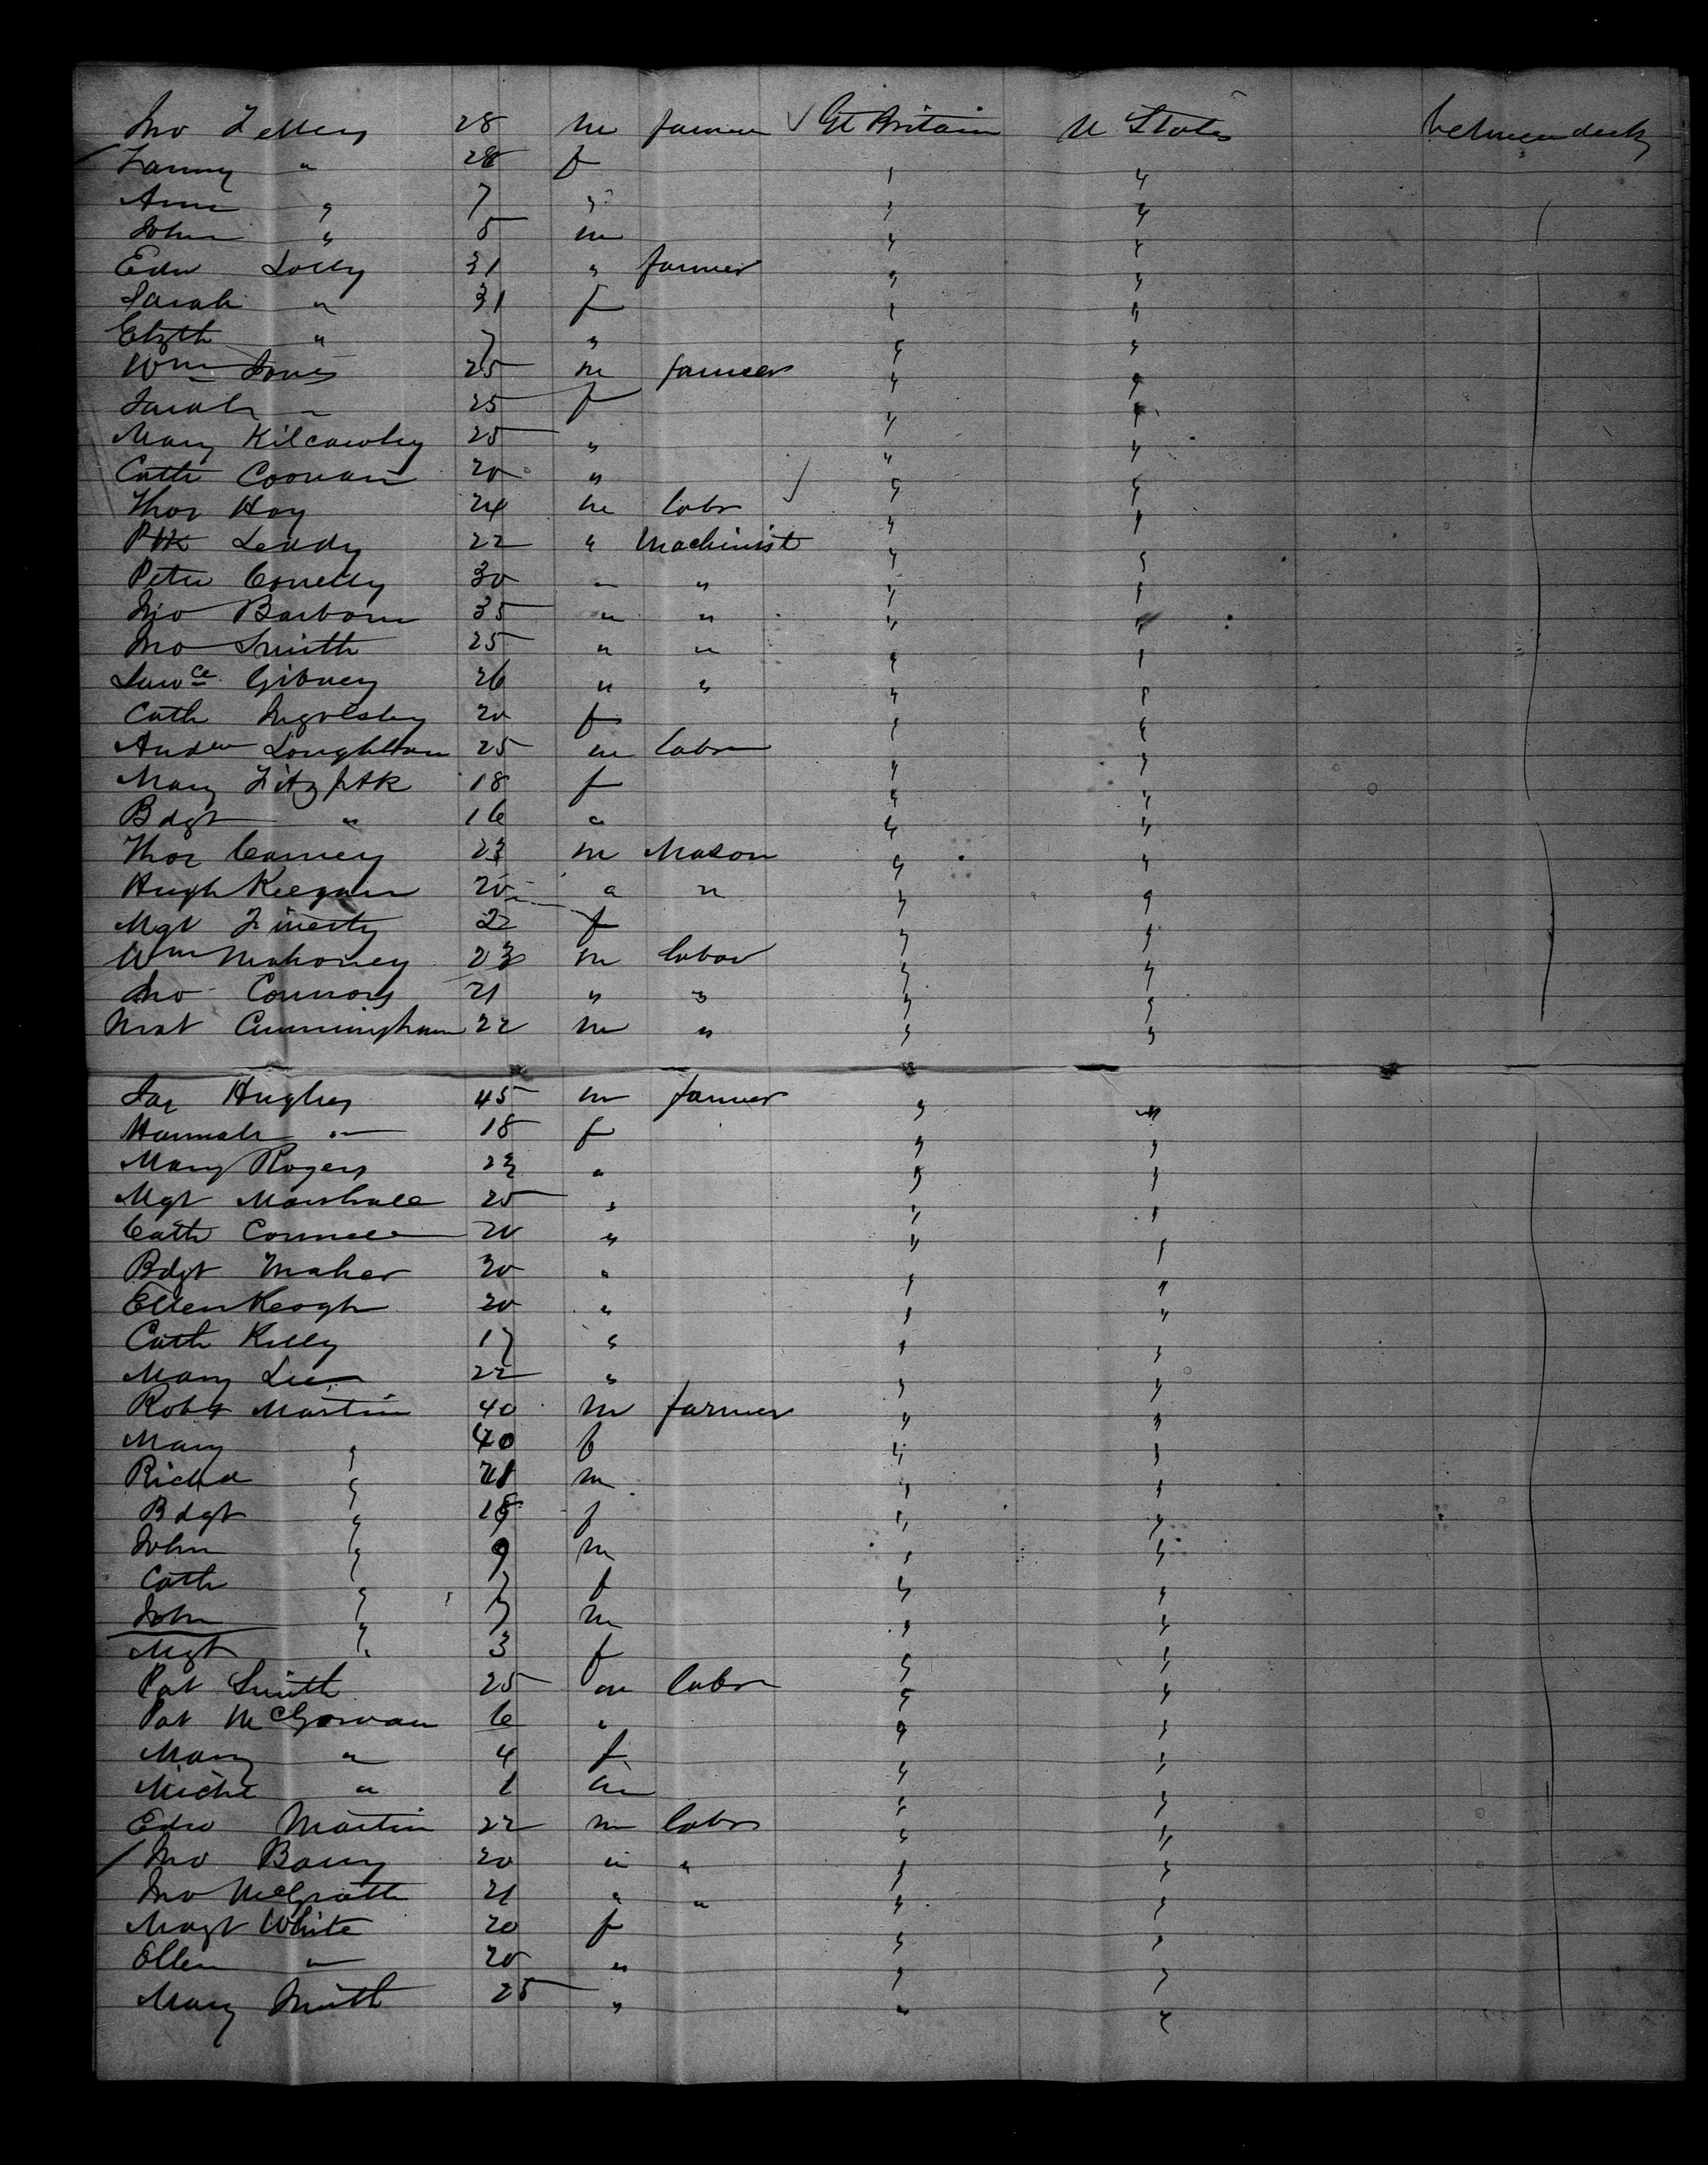 Jno Fellers 28 m farmer ✓ Gt Britain U States between decks
Fanny " 28 f " "
Ann " 7 " " "
John " 5 m " "
Edw Lolly 31 " farmer " "
Sarah " 31 f " "
Elizth " 7 " " "
Wm Jones 25 m farmer " "
Sarah " 25 f " "
Mary Kilcawley 25 " " "
Cath 20 " " "
Thos Hoy 24 m labr ✓ " "
Ptk Leddy 22 " Machinist " "
Peter Conelly 30 " " " "
Jno Barborn 35 " " " "
Jno Smith 25 " " " "
Lawce Gibney 26 " " " "
Cath Ingolsby 20 f " "
Andw 25 m labr " "
Mary Fitzptk 18 f " "
Bdgt " 16 " " "
Thos Carney 23 m Mason " "
Hugh Keegan 20 " " " "
Mgt Finerty 22 f " "
Wm Mahoney 23 m labor " "
Jno Connors 21 " " " "
Mat Cunningham 22 m " " "
Jas Hughes 45 m farmer " "
Hannah " 18 f " "
Mary Rogers 23 " " "
Mgt Marshall 25 " " "
Cath Connell 20 " " "
Bdgt Maher 30 " " "
Ellen Keogh 20 " " "
Cath Kelly 17 " " "
Mary Lee 22 " " "
Robt Martin 40 m farmer " "
Mary " 40 f " "
Richd " 21 m " "
Bdgt " 18 f " "
John " 9 m " "
Cath " 7 f " "
John " 7 m " "
Mgt " 3 f " "
Pat Smith 25 m labr " "
Pat McGowan 6 " " "
Mary " 4 f " "
Michl " 1 m " "
Edw Martin 22 m labr " "
Jno Barry 20 m " " "
Jno McGrath 21 " " " "
Magt White 20 f " "
Ellen " 20 " " "
Mary Smith 25 " " "